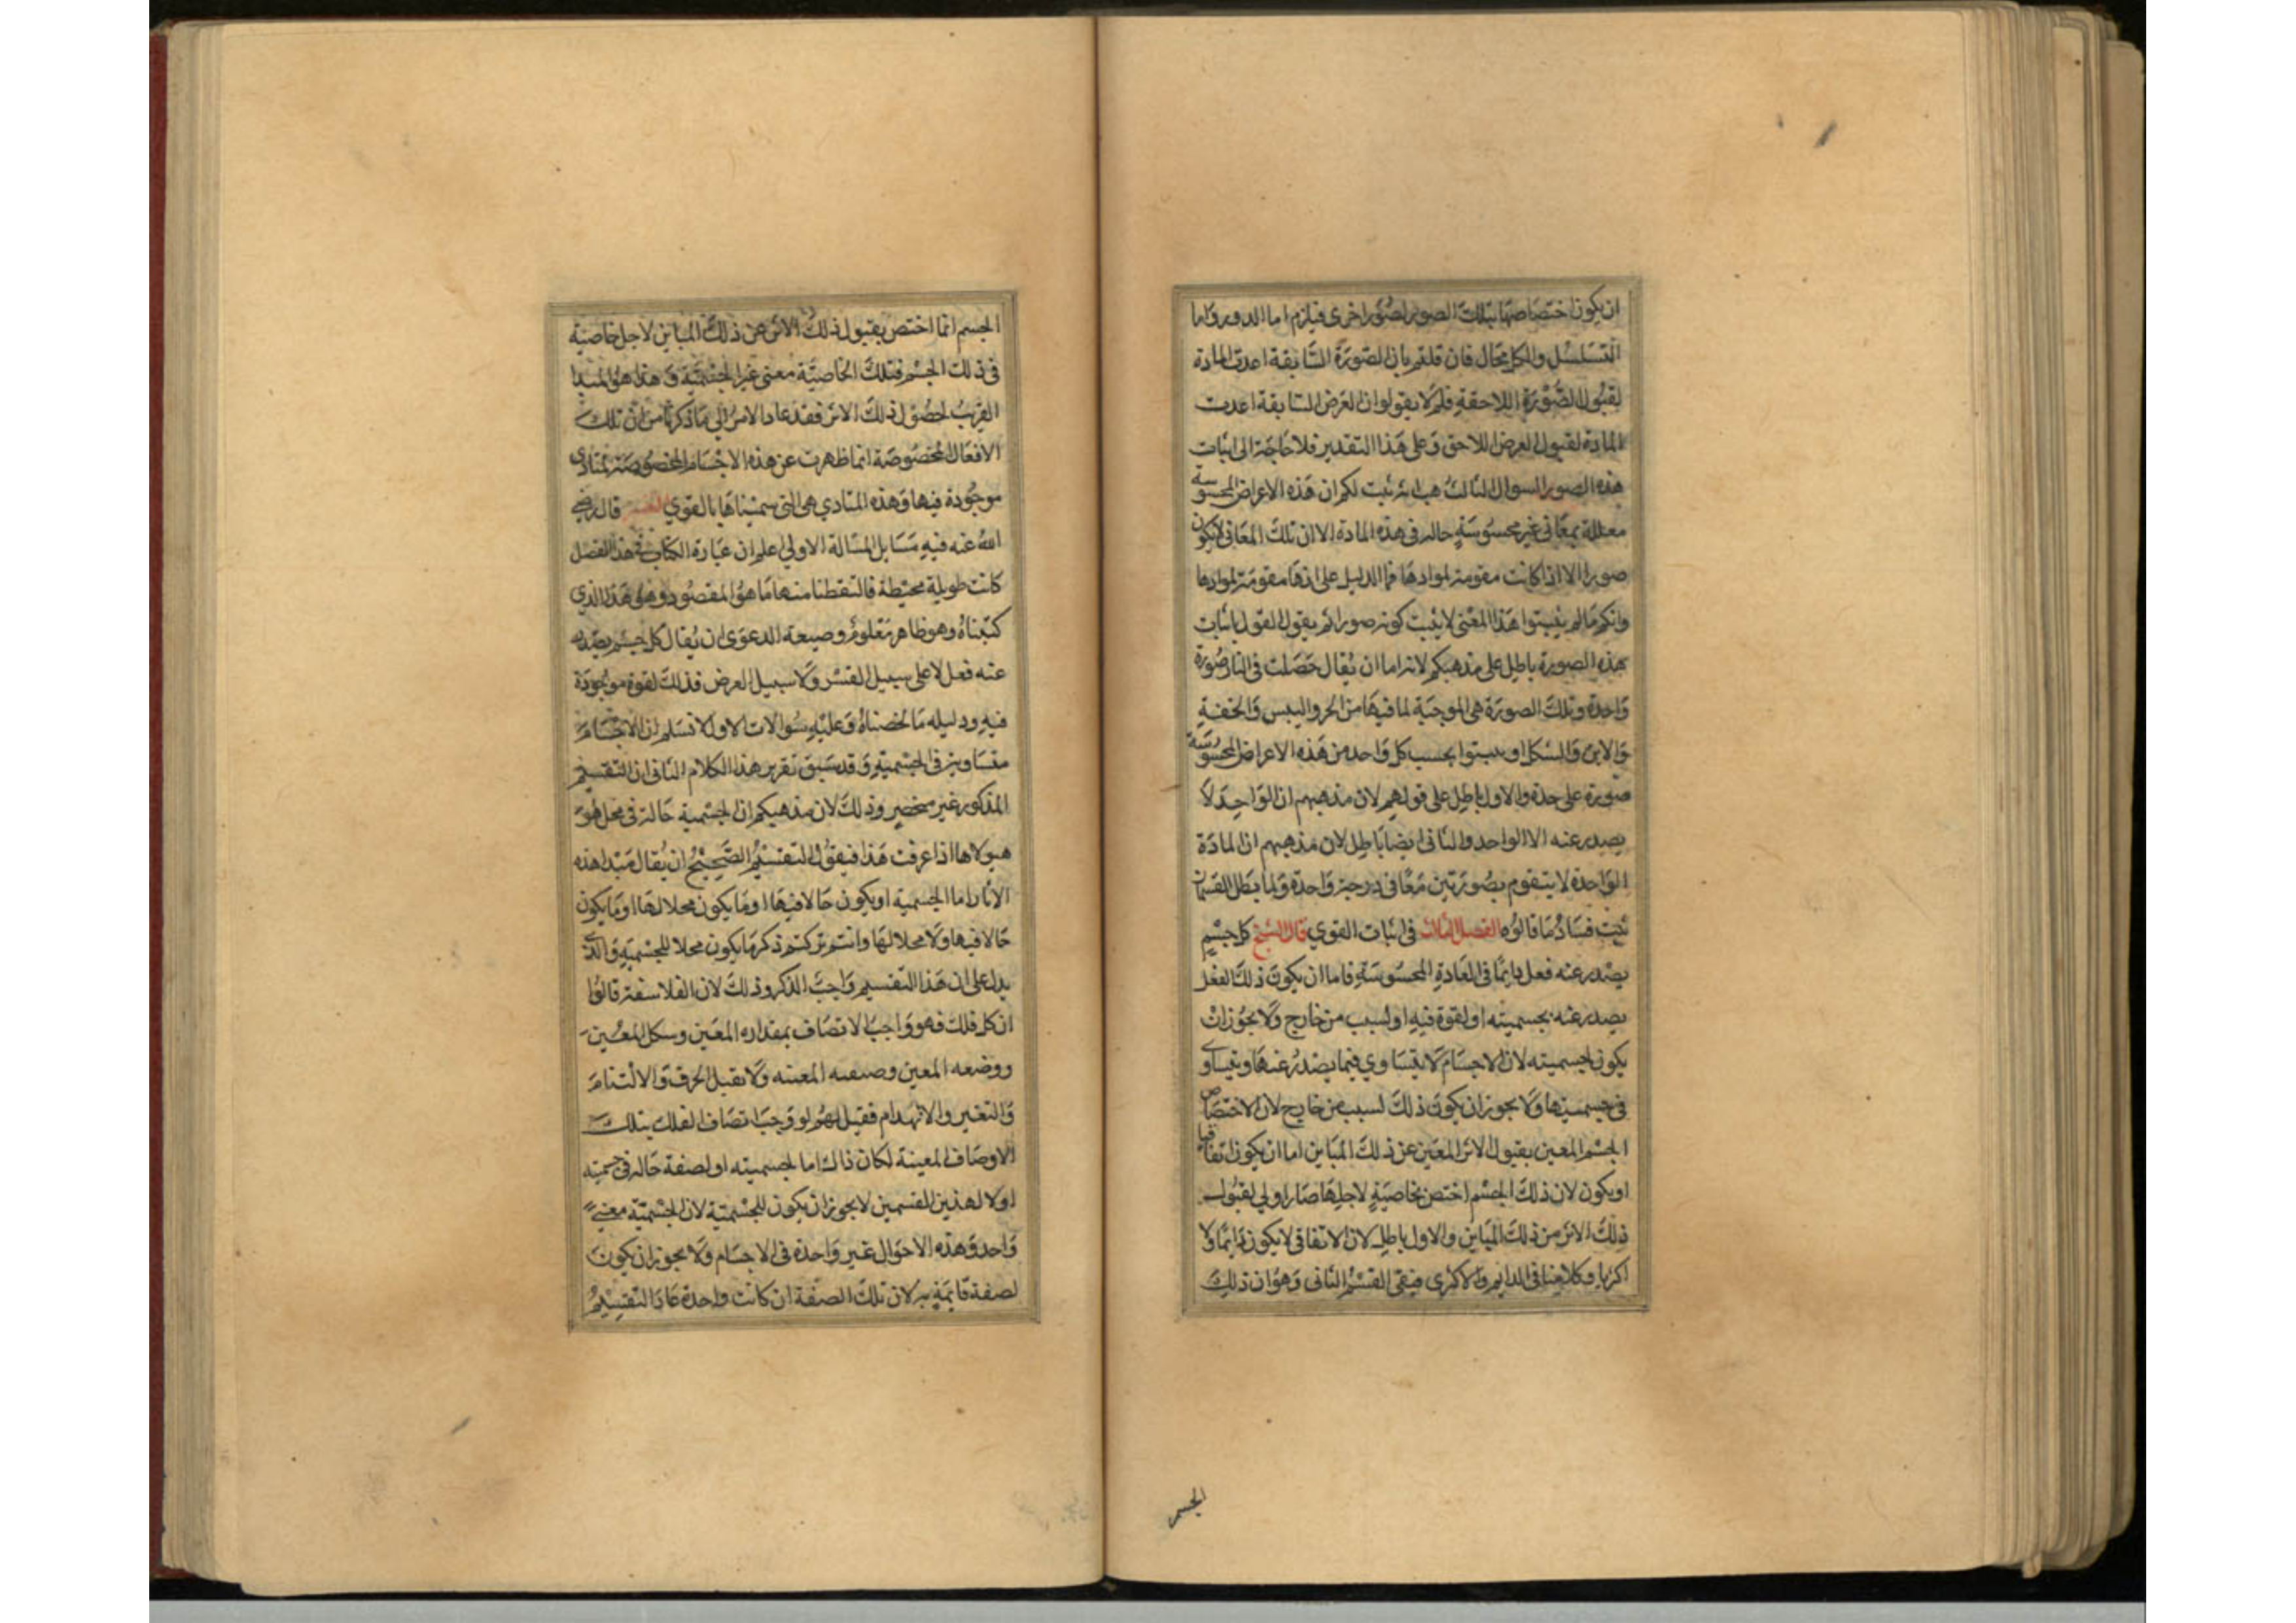 ان يكون اختصاصها بتلك الصور لصور اخرى فيلزم اما الدور واما
التسلسل والكل محال فان قلتم بان الصورة السابقة اعدت المادة
لقبول الصورة اللاحقة فلم لا يقولوا ان العرض السابقة اعدت
المادة لقبول العرض اللاحق وعلى هذا التقدير فلا حاجة الى اثبات
هذه الصور السوال الثالث هب انه ثبت لكم ان هذه الاعراض المحسوسة
معللة بمعانى غير محسوسة حالة فى هذه المادة الا ان تلك المعانى لا يكون
صورا الا اذا كانت مقومة لموادها فما الدليل على انها مقومة لموادها
وانكم ما لم يثبتوا هذا المعنى لا يثبت كونه صورا ثم يقول القول باثبات
هذه الصورة باطل على مذهبكم لانه اما ان يقال حصلت فى النار صورة
واحدة وتلك الصورة هى الموجبة لما فيها من الحر واليبس والخفة
والاين والشكل او يثبتوا بحسب كل واحد من هذه الاعراض المحسوسة
صورة على حدة والاول باطل على قولهم لان مذهبهم ان الواحد لا
يصدر عنه الا الواحد والثانى ايضا باطل لان مذهبهم ان المادة
الواحدة لا يتقوم بصورتين معا فى درجة واحدة ولما بطل القسمان
ثبت فساد ما قالوه الفصل الثالث فى اثبات القوي قال الشيخ كل جسم
يصدر عنه فعل دايما فى العادة المحسوسة فاما ان يكون ذلك الفعل
يصدر عنه بجسميته او لقوة فيه او لسبب من خارج ولا يجوز ان
يكون لجسميته لان الاجسام لا يتساوي فيما يصدر عنها ويتساوى
فى جسميتها ولا يجوز ان يكون ذلك لسبب من خارج لان الاختصاص
الجسم المعين بقبول الاثر المعين عن ذلك المباين اما ان يكون اتفاقيا
او يكون لان ذلك الجسم اختص بخاصية لاجلها صار اولي لقبول
ذلك الاثر من ذلك المباين والاول باطل لان الاتفاقى لا يكون دايما ولا
اكثريا وكلامنا فى الدايم والاكثرى فبقى القسم الثانى وهو ان ذلك
الجسم
الجسم انما اختص بقبول ذلك الاثر عن ذلك المباين لاجل خاصية
فى ذلك الجسم فتلك الخاصية معنى غير الجسمية وهذا هو المبدا
القريب لحصول ذلك الاثر فقد عاد الامر الي ما ذكرنا من ان تلك
الافعال المخصوصة انما ظهرت عن هذه الاجسام المخصوصة لمبادى
موجودة فيها وهذه المبادي هى التى سميناها بالقوي التفسير قال رضي
الله عنه فيه مسايل المسالة الاولي اعلم ان عبارة الكتاب فى هذا الفصل
كانت طويلة محيطة فالتقطنا منها ما هو المقصود وهو هذا الذي
كتبناه وهو ظاهر معلوم وصيغة الدعوى ان يقال كل جسم يصدر
عنه فعل لا على سبيل القسر ولا سبيل العرض فذلك لقوة موجودة
فيه ودليله ما لخصناه وعليه سوالات الاول لا نسلم ان الاجسام
متساوية فى الجسمية وقد سبق تقرير هذا الكلام الثانى ان التقسيم
المذكور غير منحصر وذلك لان مذهبكم ان الجسمية حالة فى محل هو
هيولاها اذا عرفت هذا فيقول التقسيم الصحيح ان يقال مبدا هذه
الاثار اما الجسمية او يكون حالا فيها او ما يكون محلا لها او ما يكون
حالا فيها ولا محلا لها وانتم تركتم ذكر ما يكون محلا للجسمية والذى
يدل على ان هذا التقسيم واجب الذكر وذلك لان الفلاسفة قالوا
ان كل فلك فهو واجب الاتصاف بمقداره المعين وشكل المعين
ووضعه المعين وصفته المعينه ولا يقبل الخرق والالتيام
والتغير والانهدام فقيل لهم لو وجب اتصاف الفلك بتلك
الاوصاف المعينة لكان ذلك اما لجسميته او لصفة حالة فى جسميته
او لا لهذين القسمين لا يجوز ان يكون للجسمية لان الجسمية معنى
واحد وهذه الاحوال غير واحدة فى الاجسام ولا يجوز ان يكون
لصفة قايمة به لان تلك الصفة ان كانت واحدة عاد التقسيم